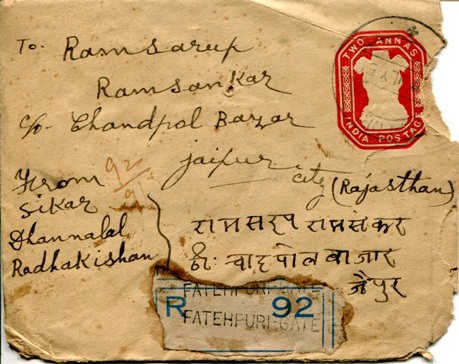 To. Ramsarup
Ramsankar
c/o Chandpol Bazar
Jaipur
city (Rajasthan)
TWO ANNAS
INDIA POSTAGE
92
From
Sikar
Dhannalal
Radhakishan
रामसरुप रामसंकर
ठी: चादपोल बाजार
जैपुर
FATEHPURI-GATE
R 92
FATEHPURI-GATE